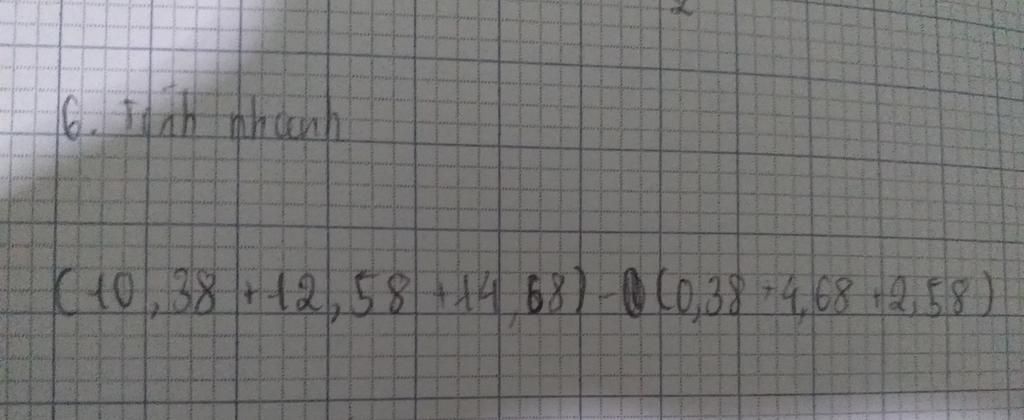 6. Tính nhanh
(10,38 + 12,58 + 14,68) - (0,38 + 4,68 + 2,58)